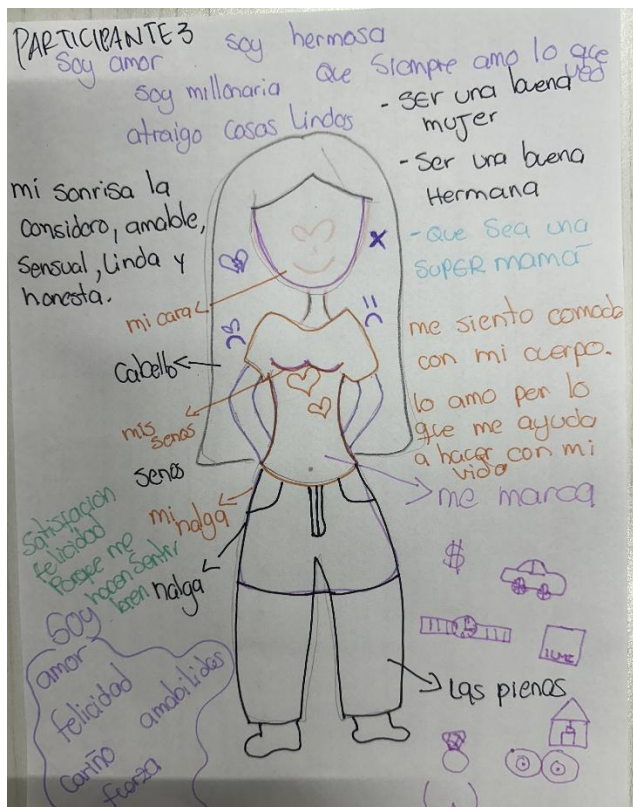 PARTICIPANTE 3
soy hermosa
Soy amor
que siempre amo lo que
veo
soy millonaria
atraigo cosas lindas
- Ser una buena
mujer
- Ser una buena
Hermana
- que sea una
SUPER MAMÁ
mi sonrisa la
considoro, amable,
sensual, linda y
honesta.
mi cara
cabello
mis
senos
senos
mi nalga
nalga
me siento comoda
con mi cuerpo.
lo amo por lo
que me ayuda
a hacer con mi
vida
me marca
Satisfacion
felicidad
Porque me
hacen sentir
bien
Las piernas
$
Soy
amor
felicidad
amabilidas
cariño
fuerza